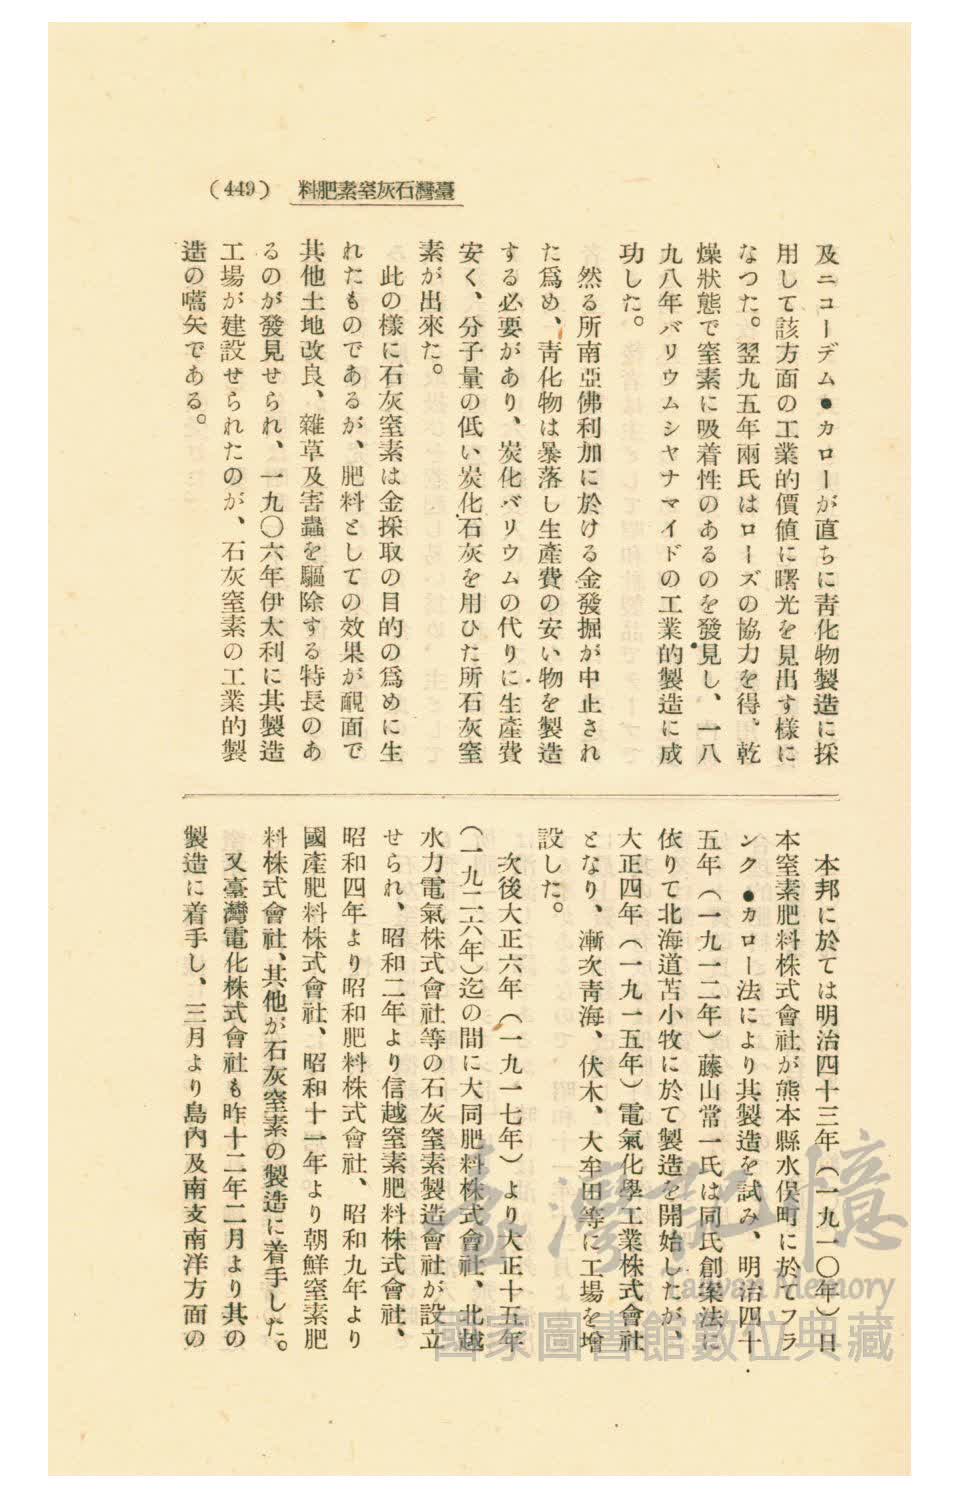 臺灣石灰窒素肥料
(449)
及ニコーデム●カローが直ちに靑化物製造に採
用して該方面の工業的價値に曙光を見出す樣に
なつた。翌九五年兩氏はローズの協力を得、乾
燥狀態で窒素に吸着性のあるのを發見し、一八
九八年バリウムシヤナマイドの工業的製造に成
功した。
然る所南亞佛利加に於ける金發掘が中止され
た爲め、靑化物は暴落し生產費の安い物を製造
する必要があり、炭化バリウムの代りに生產費
安く、分子量の低い炭化石灰を用ひた所石灰窒
素が出來た。
此の樣に石灰窒素は金採取の目的の爲めに生
れたものであるが、肥料としての效果が覿面で
其他土地改良、雜草及害蟲を驅除する特長のあ
るのが發見せられ、一九〇六年伊太利に其製造
工場が建設せられたのが、石灰窒素の工業的製
造の嚆矢である。
本邦に於ては明治四十三年（一九一〇年）日
本窒素肥料株式會社が熊本縣水俣町に於てフラ
ンク●カロー法により其製造を試み、明治四十
五年（一九一二年）藤山常一氏は同氏創案法に
依りて北海道苫小牧に於て製造を開始したが、
大正四年（一九一五年）電氣化學工業株式會社
となり、漸次靑海、伏木、大牟田等に工場を增
設した。
次後大正六年（一九一七年）より大正十五年
（一九二六年）迄の間に大同肥料株式會社、北越
水力電氣株式會社等の石灰窒素製造會社が設立
せられ、昭和二年より信越窒素肥料株式會社、
昭和四年より昭和肥料株式會社、昭和九年より
國產肥料株式會社、昭和十一年より朝鮮窒素肥
料株式會社、其他が石灰窒素の製造に着手した。
又臺灣電化株式會社も昨十二年二月より其の
製造に着手し、三月より島內及南支南洋方面の
臺灣記憶
Taiwan Memory
國家圖書館數位典藏